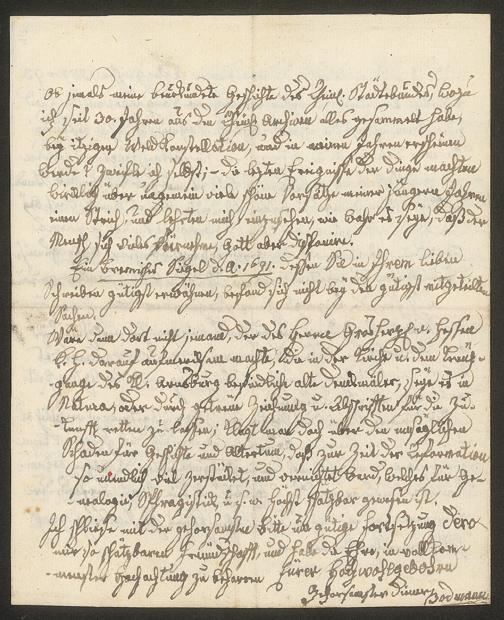 Ob jemals meine beurkundete Geschichte des Rhein. Städtebundes, wozu
ich seit 30. Jahren aus den Rhein. Archiven alles gesammelt habe,
bey itziger Weltkonstellation, und in meinen Jahren erscheinen
werde? zweifle ich selbst; – die lezten Ereignisse der Dinge machten
über ungemein viele schöne Vorsätze meiner jüngern Jahren
einen Strich, und lehrten mich einzusehen, wie wahr es seye, daß der
Mensch sich vieles fürnehme, Gott aber disponire.
Ein Siegel d. a. 1691. dessen Sie in Ihrem lieben
Schreiben gütigst erwähnen, befand sich nicht bey den gütigst mitgeteilten
Sachen.
Wäre dann dort nicht jemand, der des Herrn Großherzl. v. Hessen
K. H. darauf aufmerksam machte, die in der Kirche u. dem Kreuz-
gange des Kl. Arnsburg befindliche alte Denkmäler, seye es in
Natura, oder durch getreue Zeichnung u. Abschriften für die Zu-
kunft retten zu lassen; klagt man doch über den unsäglichen
Schaden für Geschichte und Altertum, daß zur Zeit der Reformation
so unendlich viel zerstöret, und vernichtet ward, welches für Ge-
nealogie, Sphragistik, u. s. w. höchst schäzbar gewesen ist.
Ich schliese mit der gehorsamsten Bitte um gütige Fortsetzung Dero
mir so schäzbaren Freundschaft, und habe die Ehre, in vollkom-
menster Hochachtung zu beharren Euer Hochwohlgebohren
Gehorsamster Diener
Bodmann